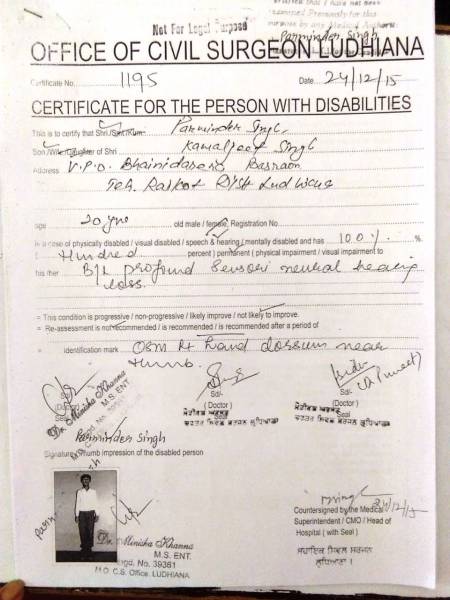 Not For Legal Purpose
certified that I have not been
examined Previously for this
purpose by any Medical
Parminder Singh
OFFICE OF CIVIL SURGEON LUDHIANA
Certificate No. 1195 Date 24/12/15
CERTIFICATE FOR THE PERSON WITH DISABILITIES
This is to certify that Shri/Smt/Kum. Parminder Singh
Son/Wife/Daughter of Shri Kamaljeet Singh
Address V.P.O. Bhainidarera Basraon
Teh. Raikot Distt Ludhiana
age 20 yrs old male / female, Registration No.
is a case of physically disabled / visual disabled / speech & hearing / mentally disabled and has 100% %.
( Hundred percent ) permanent ( physical impairment / visual impairment to
his /her B/L profound Sensori neural hearing
loss.
= This condition is progressive / non-progressive / likely improve / not likely to improve.
= Re-assessment is not recommended / is recommended / is recommended after a period of
= identification mark OSM Rt hand dorsum near
thumb.
Sd/- Sd/- Sd/-
(Doctor) (Doctor) (Doctor)
Seal Seal
Dr. Minisha Khanna
M.S. ENT
Parminder Singh
Signature / thumb impression of the disabled person
24/12/15
Countersigned by the Medical
Superintendent / CMO / Head of
Hospital ( with Seal )
ਸਹਾਇਕ ਸਿਵਲ ਸਰਜਨ
ਲੁਧਿਆਣਾ ।
Dr. Minisha Khanna
M.S. ENT
Regd. No. 39361
M.O C.S. Office. LUDHIANA